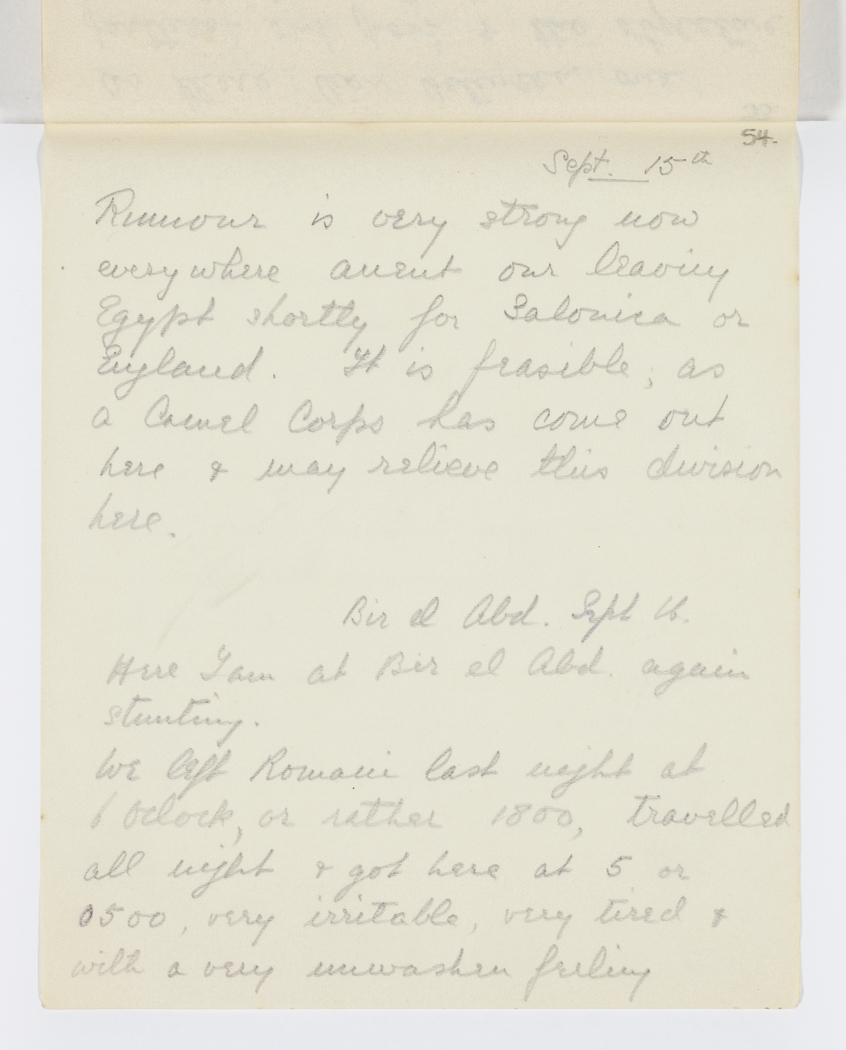 54.
Sept. 15th
Rumour is very strong now
everywhere anent our leaving
Egypt shortly for Salonica or
England. It is feasible, as
a Camel Corps has come out
here & may relieve this division
here.
Bir el Abd. Sept 16.
Here I am at Bir el Abd. again
stunting.
We left Romani last night at
6 Oclock, or rather 1800, travelled
all night & got here at 5 or
0500, very irritable, very tired &
with a very unwashen feeling